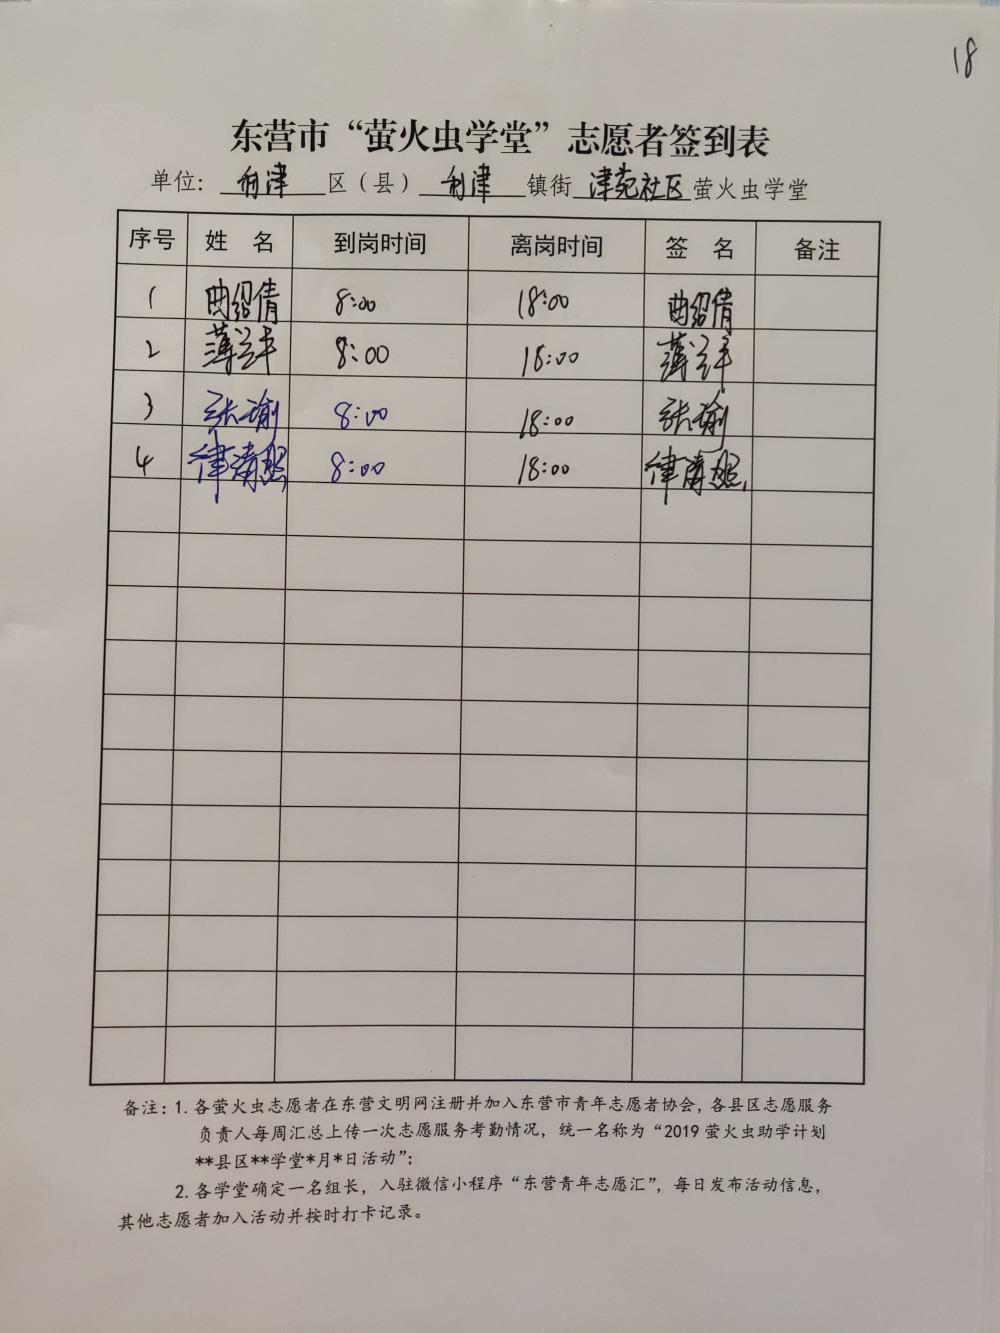 18
东营市“萤火虫学堂”志愿者签到表
单位: 利津 区（县） 利津 镇街 津苑社区 萤火虫学堂
序号 姓 名 到岗时间 离岗时间 签 名 备注
1 曲绍倩 8:00 18:00 曲绍倩
2 薄兰芊 8:00 18:00 薄兰芊
3 张瑜 8:00 18:00 张瑜
4 律清照 8:00 18:00 律清照
备注: 1. 各萤火虫志愿者在东营文明网注册并加入东营市青年志愿者协会，各县区志愿服务
负责人每周汇总上传一次志愿服务考勤情况，统一名称为“2019 萤火虫助学计划
**县区**学堂*月*日活动”;
2. 各学堂确定一名组长，入驻微信小程序“东营青年志愿汇”，每日发布活动信息，
其他志愿者加入活动并按时打卡记录。